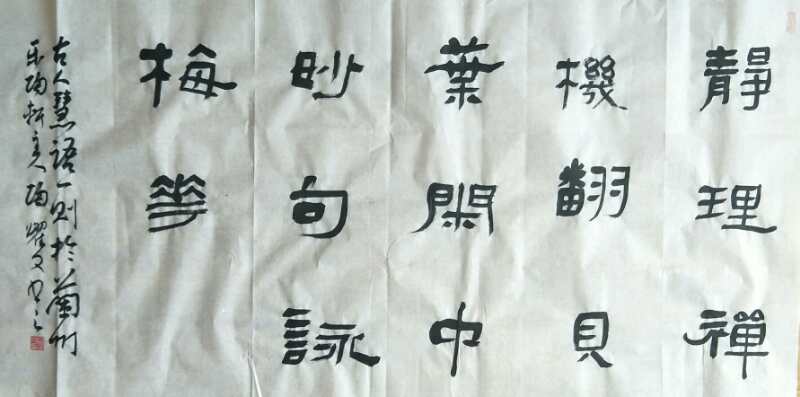 靜理禪
機翻貝
葉閑中
妙句詠
梅花
古人慧語一則於蘭州
樂陶軒主人陶